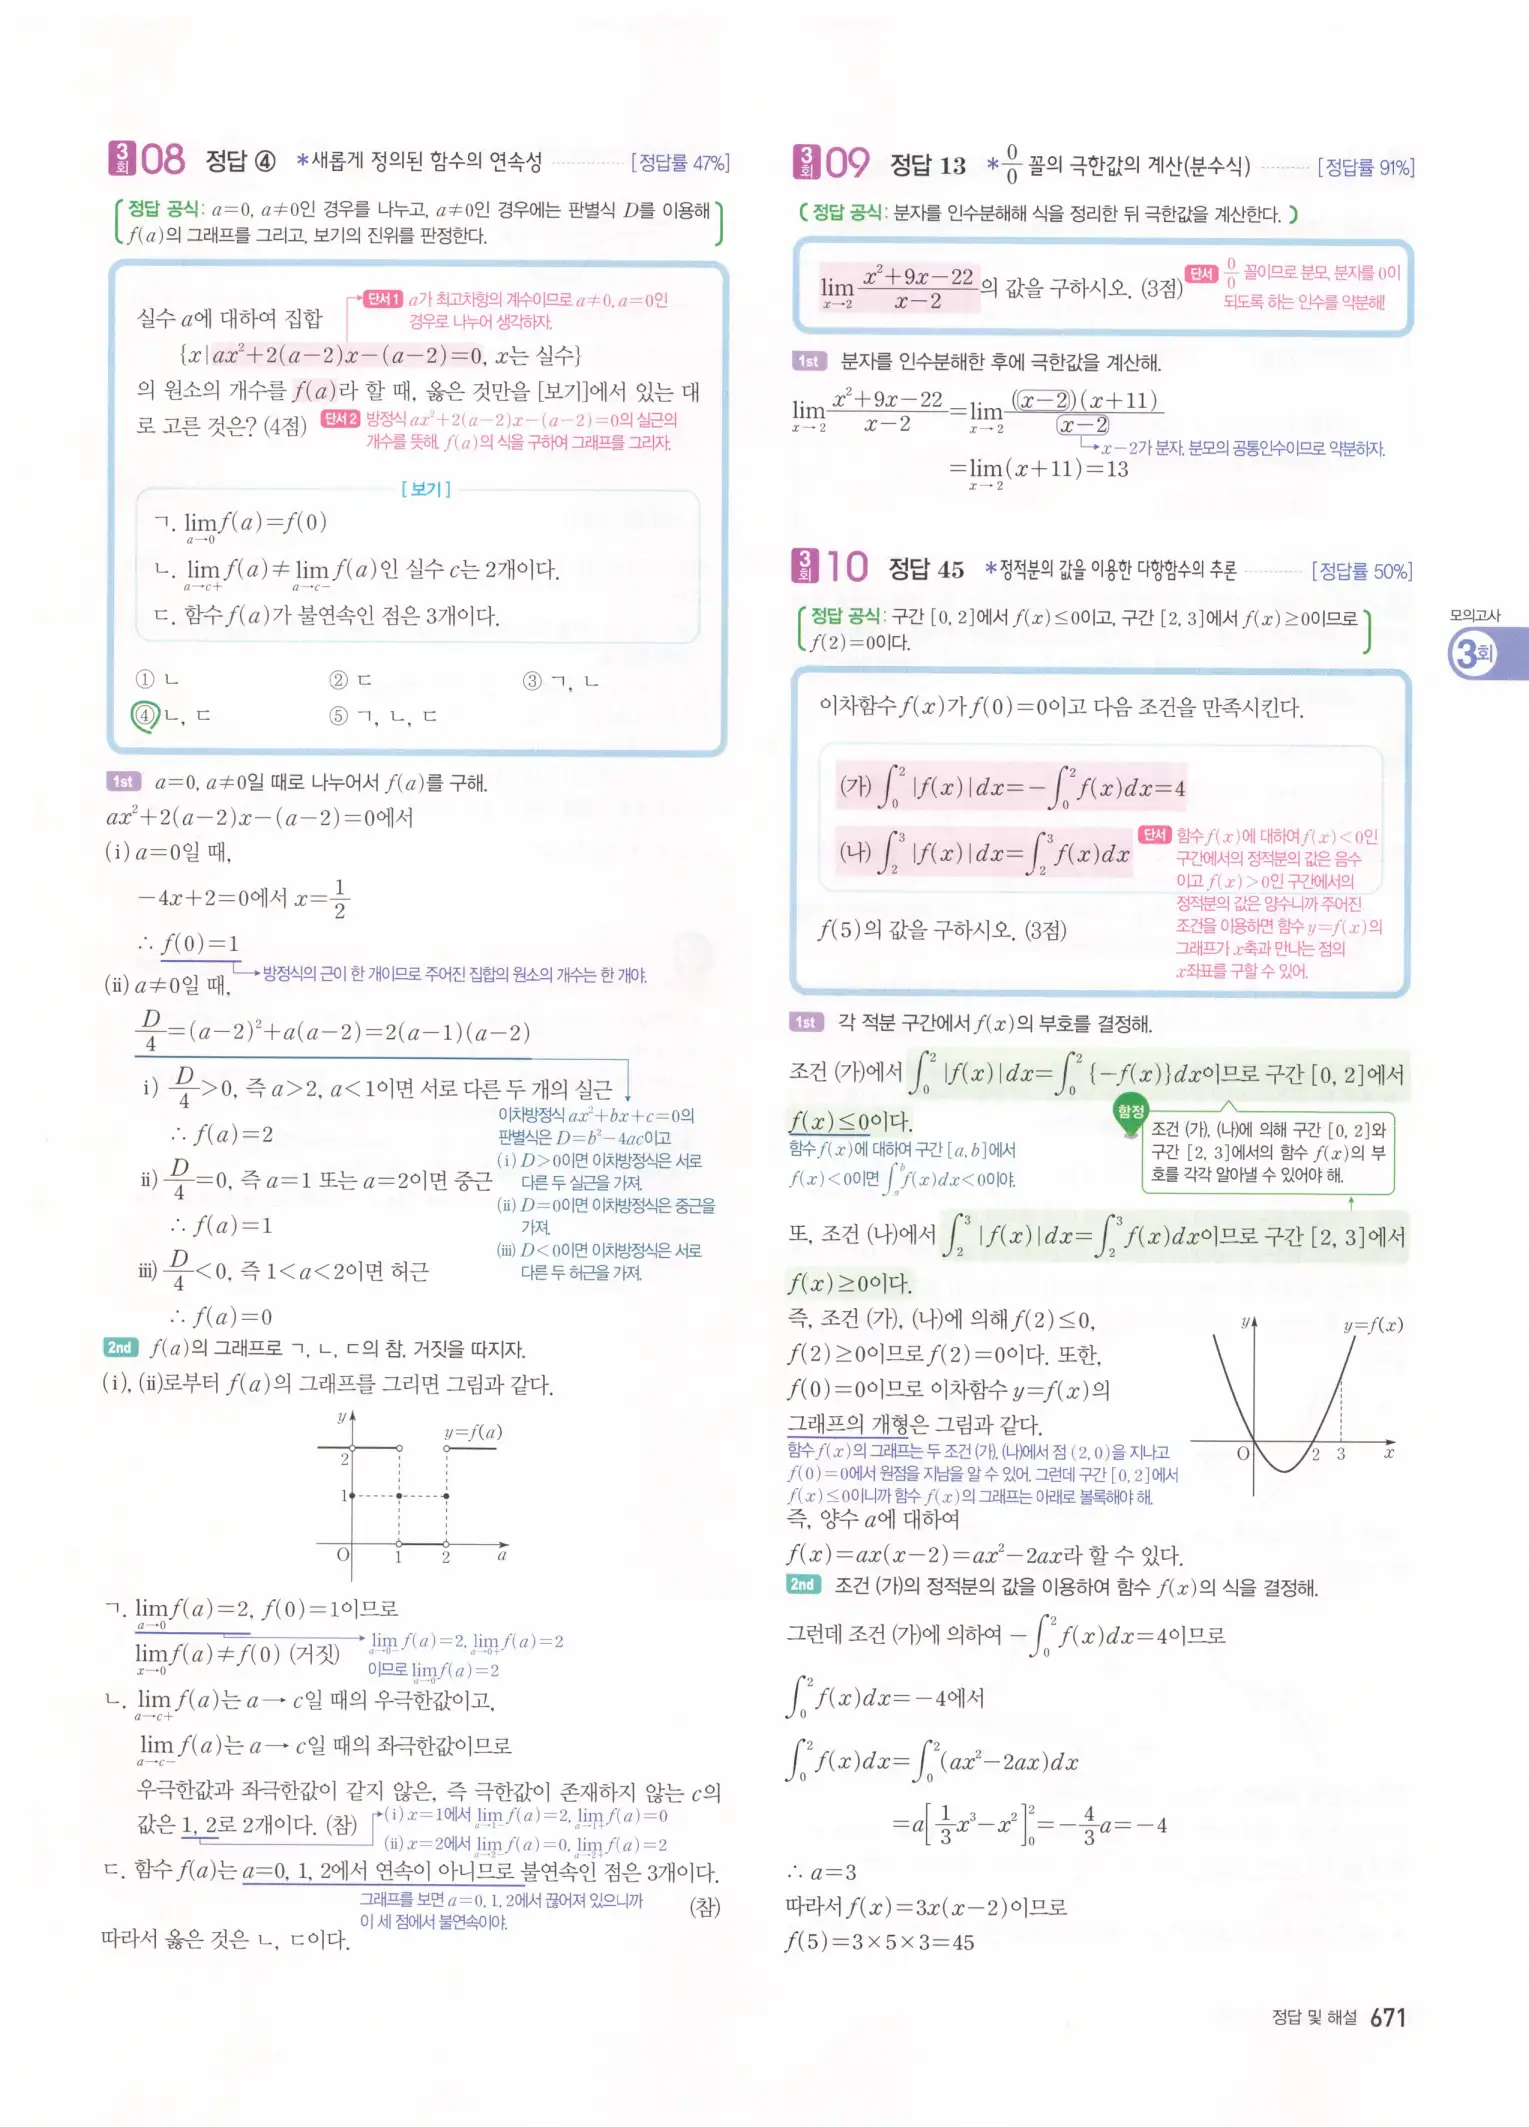 3회 08 정답 ④ *새롭게 정의된 함수의 연속성 [정답률 47%]
정답 공식: a=0, a≠0인 경우를 나누고, a≠0인 경우에는 판별식 D를 이용해
f(a)의 그래프를 그리고, 보기의 진위를 판정한다.
단서1 a가 최고차항의 계수이므로 a≠0, a=0인
경우로 나누어 생각하자.
실수 a에 대하여 집합
{x|ax²+2(a-2)x-(a-2)=0, x는 실수}
의 원소의 개수를 f(a)라 할 때, 옳은 것만을 [보기]에서 있는 대
로 고른 것은? (4점)
단서2 방정식 ax²+2(a-2)x-(a-2)=0의 실근의
개수를 뜻해. f(a)의 식을 구하여 그래프를 그리자.
[보기]
ㄱ. lim_{a→0} f(a)=f(0)
ㄴ. lim_{a→c+} f(a)≠lim_{a→c-} f(a)인 실수 c는 2개이다.
ㄷ. 함수 f(a)가 불연속인 점은 3개이다.
① ㄴ ② ㄷ ③ ㄱ, ㄴ
④ ㄴ, ㄷ ⑤ ㄱ, ㄴ, ㄷ
1st a=0, a≠0일 때로 나누어서 f(a)를 구해.
ax²+2(a-2)x-(a-2)=0에서
(i) a=0일 때,
-4x+2=0에서 x=1/2
∴ f(0)=1
방정식의 근이 한 개이므로 주어진 집합의 원소의 개수는 한 개야.
(ii) a≠0일 때,
D/4=(a-2)²+a(a-2)=2(a-1)(a-2)
i) D/4>0, 즉 a>2, a<1이면 서로 다른 두 개의 실근
∴ f(a)=2
ii) D/4=0, 즉 a=1 또는 a=2이면 중근
∴ f(a)=1
iii) D/4<0, 즉 1<a<2이면 허근
∴ f(a)=0
이차방정식 ax²+bx+c=0의
판별식은 D=b²-4ac이고
(i) D>0이면 이차방정식은 서로
다른 두 실근을 가져.
(ii) D=0이면 이차방정식은 중근을
가져.
(iii) D<0이면 이차방정식은 서로
다른 두 허근을 가져.
2nd f(a)의 그래프로 ㄱ, ㄴ, ㄷ의 참, 거짓을 따지자.
(i), (ii)로부터 f(a)의 그래프를 그리면 그림과 같다.
y
y=f(a)
2
1
O 1 2 a
ㄱ. lim_{a→0} f(a)=2, f(0)=1이므로
lim_{x→0} f(a)≠f(0) (거짓)
lim_{a→0-} f(a)=2, lim_{a→0+} f(a)=2
이므로 lim_{a→0} f(a)=2
ㄴ. lim_{a→c+} f(a)는 a→c일 때의 우극한값이고,
lim_{a→c-} f(a)는 a→c일 때의 좌극한값이므로
우극한값과 좌극한값이 같지 않은, 즉 극한값이 존재하지 않는 c의
값은 1, 2로 2개이다. (참)
(i) x=1에서 lim_{a→1-} f(a)=2, lim_{a→1+} f(a)=0
(ii) x=2에서 lim_{a→2-} f(a)=0, lim_{a→2+} f(a)=2
ㄷ. 함수 f(a)는 a=0, 1, 2에서 연속이 아니므로 불연속인 점은 3개이다.
(참)
그래프를 보면 a=0, 1, 2에서 끊어져 있으니까
이 세 점에서 불연속이야.
따라서 옳은 것은 ㄴ, ㄷ이다.
3회 09 정답 13 *0/0 꼴의 극한값의 계산(분수식) [정답률 91%]
정답 공식: 분자를 인수분해해 식을 정리한 뒤 극한값을 계산한다.
lim_{x→2} (x²+9x-22)/(x-2)의 값을 구하시오. (3점)
단서 0/0 꼴이므로 분모, 분자를 0이
되도록 하는 인수를 약분해!
1st 분자를 인수분해한 후에 극한값을 계산해.
lim_{x→2} (x²+9x-22)/(x-2)=lim_{x→2} ((x-2)(x+11))/(x-2)
x-2가 분자, 분모의 공통인수이므로 약분하자.
=lim_{x→2}(x+11)=13
3회 10 정답 45 *정적분의 값을 이용한 다항함수의 추론 [정답률 50%]
정답 공식: 구간 [0, 2]에서 f(x)≤0이고, 구간 [2, 3]에서 f(x)≥0이므로
f(2)=0이다.
이차함수 f(x)가 f(0)=0이고 다음 조건을 만족시킨다.
(가) ∫₀² |f(x)|dx=-∫₀² f(x)dx=4
(나) ∫₂³ |f(x)|dx=∫₂³ f(x)dx
단서 함수 f(x)에 대하여 f(x)<0인
구간에서의 정적분의 값은 음수
이고 f(x)>0인 구간에서의
정적분의 값은 양수니까 주어진
조건을 이용하면 함수 y=f(x)의
그래프가 x축과 만나는 점의
x좌표를 구할 수 있어.
f(5)의 값을 구하시오. (3점)
1st 각 적분 구간에서 f(x)의 부호를 결정해.
조건 (가)에서 ∫₀² |f(x)|dx=∫₀² {-f(x)}dx이므로 구간 [0, 2]에서
f(x)≤0이다.
함수 f(x)에 대하여 구간 [a, b]에서
f(x)<0이면 ∫ₐᵇ f(x)dx<0이야.
함정 조건 (가), (나)에 의해 구간 [0, 2]와
구간 [2, 3]에서의 함수 f(x)의 부
호를 각각 알아낼 수 있어야 해.
또, 조건 (나)에서 ∫₂³ |f(x)|dx=∫₂³ f(x)dx이므로 구간 [2, 3]에서
f(x)≥0이다.
즉, 조건 (가), (나)에 의해 f(2)≤0,
f(2)≥0이므로 f(2)=0이다. 또한,
f(0)=0이므로 이차함수 y=f(x)의
그래프의 개형은 그림과 같다.
y y=f(x)
O 2 3 x
함수 f(x)의 그래프는 두 조건 (가), (나)에서 점 (2, 0)을 지나고
f(0)=0에서 원점을 지남을 알 수 있어. 그런데 구간 [0, 2]에서
f(x)≤0이니까 함수 f(x)의 그래프는 아래로 볼록해야 해.
즉, 양수 a에 대하여
f(x)=ax(x-2)=ax²-2ax라 할 수 있다.
2nd 조건 (가)의 정적분의 값을 이용하여 함수 f(x)의 식을 결정해.
그런데 조건 (가)에 의하여 -∫₀² f(x)dx=4이므로
∫₀² f(x)dx=-4에서
∫₀² f(x)dx=∫₀²(ax²-2ax)dx
=a[1/3x³-x²]₀²=-4/3a=-4
∴ a=3
따라서 f(x)=3x(x-2)이므로
f(5)=3×5×3=45
모의고사
3회
정답 및 해설 671